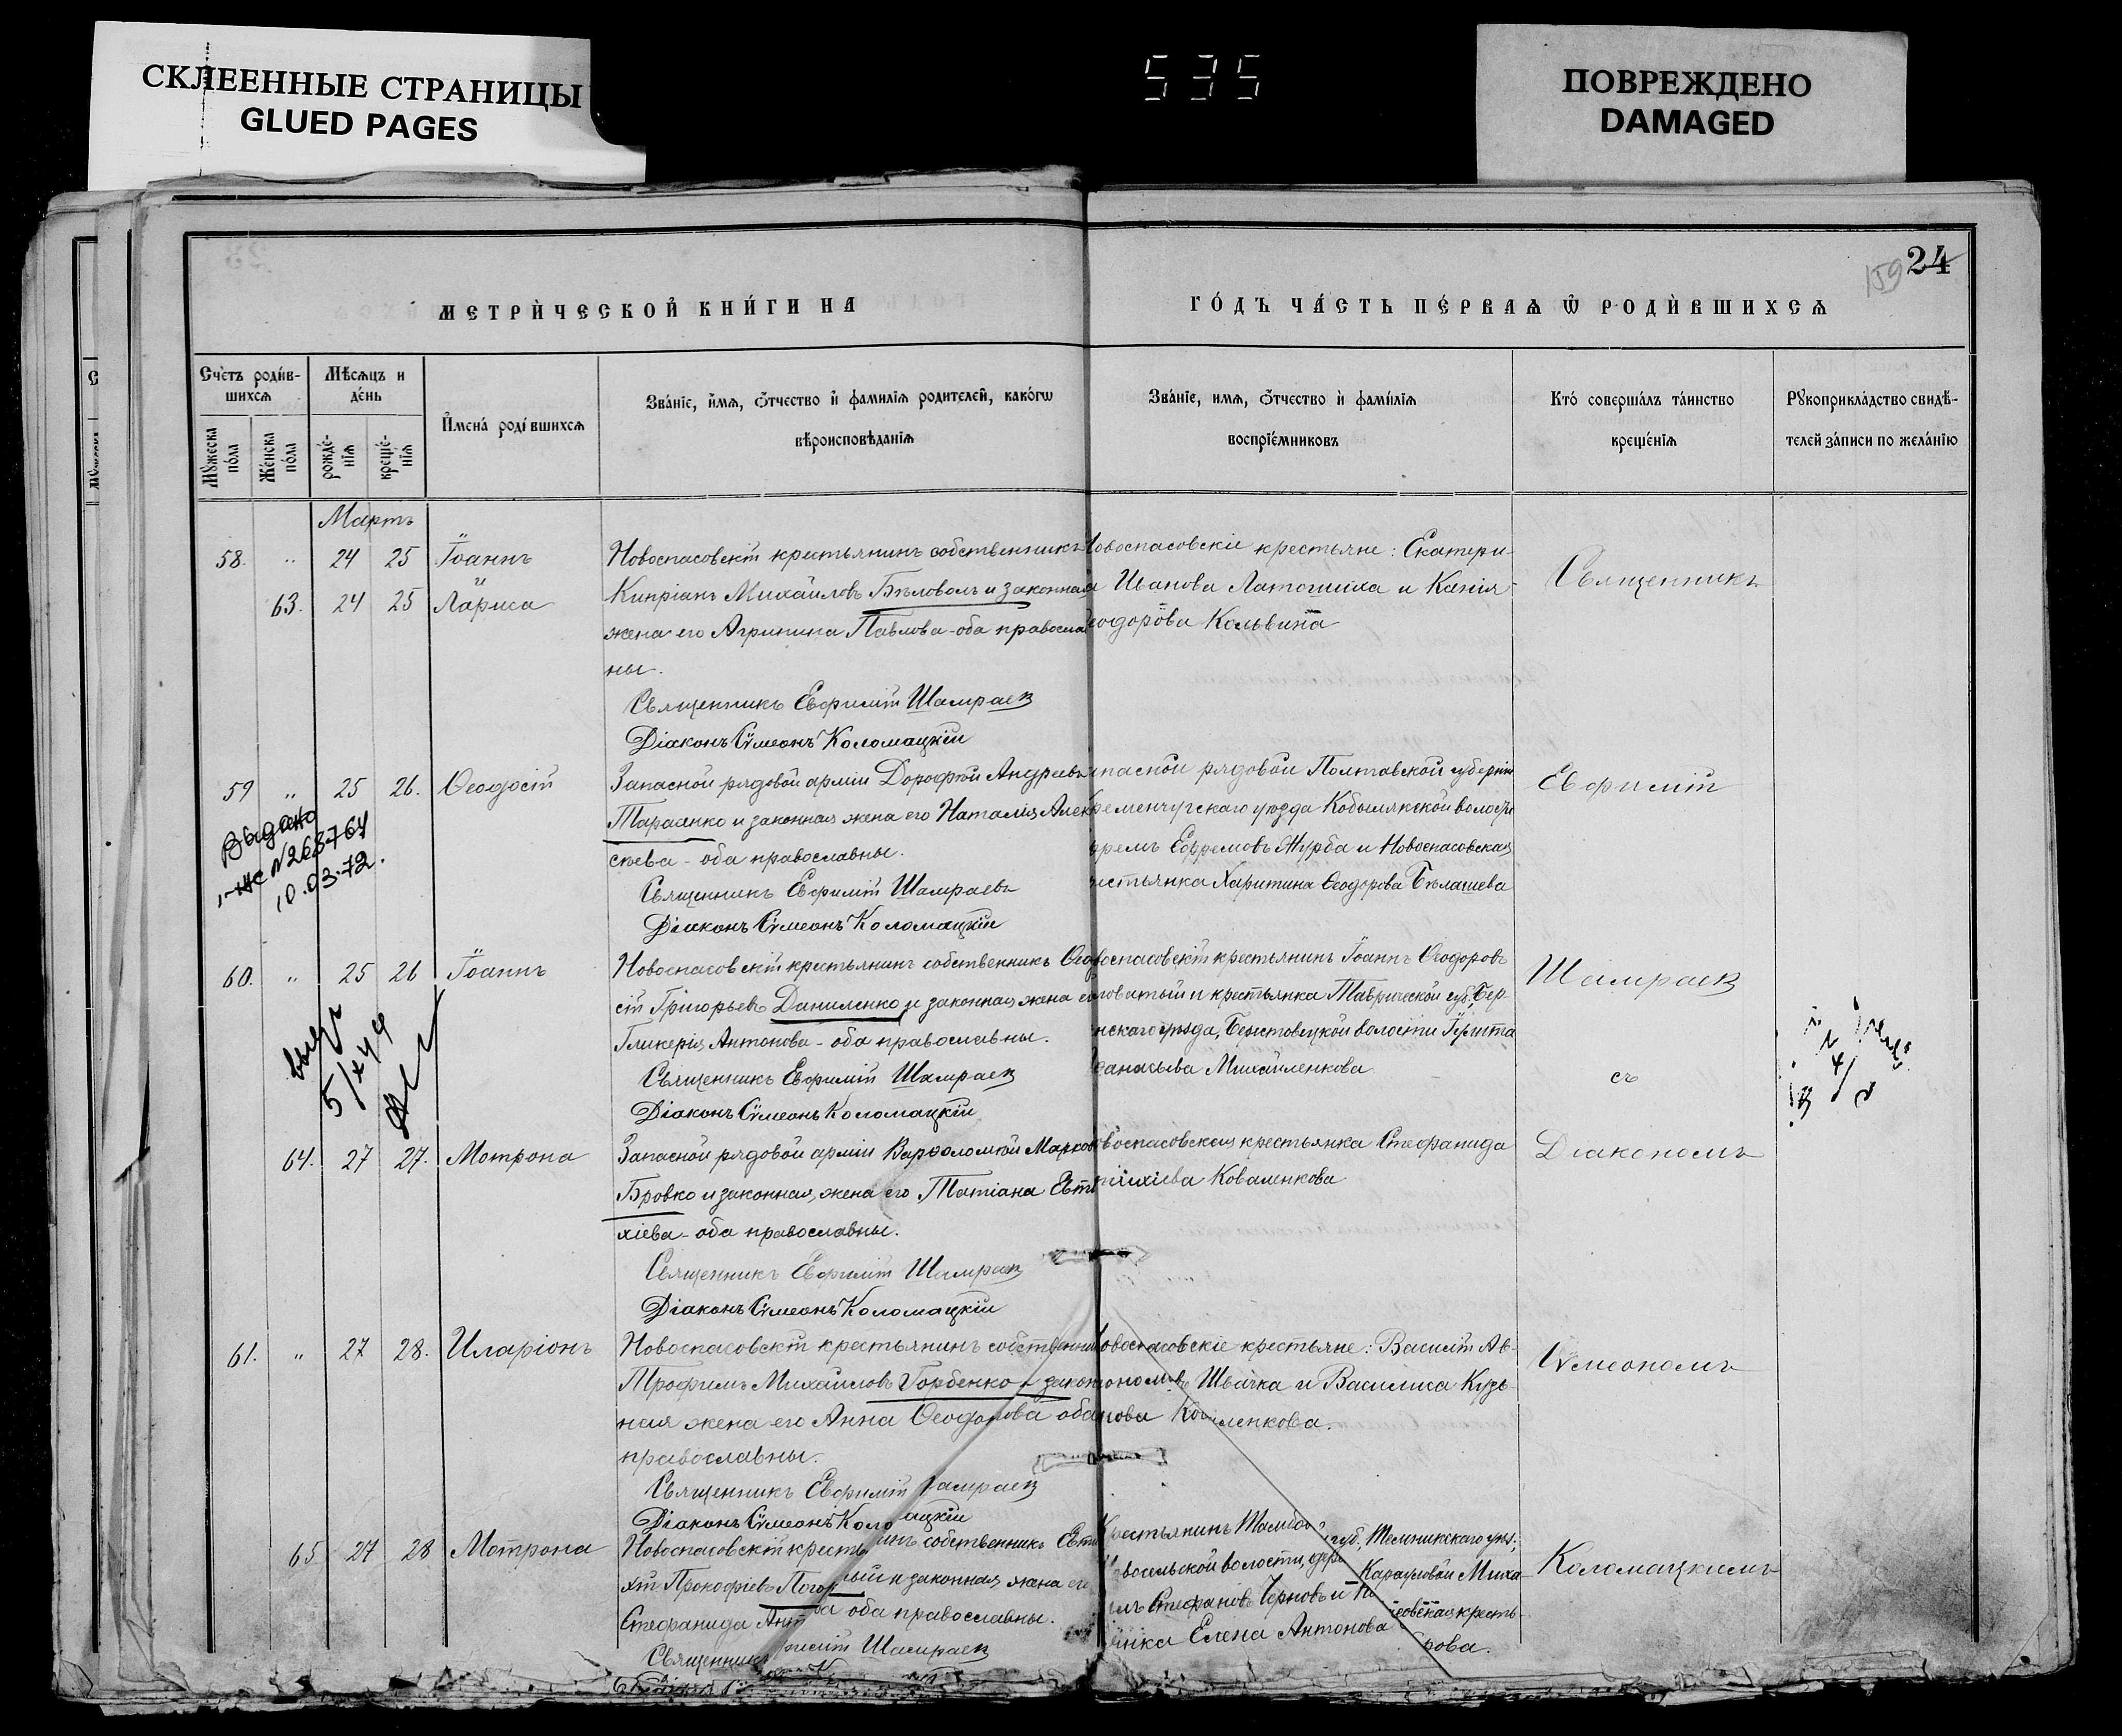 СКЛЕЕННЫЕ СТРАНИЦЫ
GLUED PAGES
535
ПОВРЕЖДЕНО
DAMAGED
24
159
МЕТРИ́ЧЕСКОЙ КНИ́ГИ НА
ГО́ДЪ ЧА́СТЬ ПЕ́РВАѦ Ѡ РОДИ́ВШИХСѦ
Сче́тъ роди́в-
шихсѧ
Мꙋ́жеска
по́ла
Же́нска
по́ла
Мѣ́сѧцъ и
де́нь
рожде́-
нїѧ
креще́-
нїѧ
И҆мена́ роди́вшихсѧ
Зва́нїе, и҆мѧ, ѻ҆́тчество и҆ фами́лїѧ роди́телей, како́гѡ
вѣроисповѣ́данїѧ
Зва́нїе, имѧ, ѻ҆́тчество и҆ фами́лїѧ
воспрїе́мниковъ
Кто́ соверша́лъ та́инство
креще́нїѧ
Рꙋкоприкла́дство свидѣ́-
телей за́писи по жела́нїю
Мартъ
58. " 24 25 Іоаннъ
63. 24 25 Лариса
Новоспасовскій крестьянинъ собственникъ
Кипріанъ Михайловъ Бѣловолъ и законная
жена его Агрипина Павлова - оба православ
ны.
Священникъ Евфимій Шамраевъ
Діаконъ Сѵмеонъ Коломацкій
овоспасовскіе крестьяне: Екатери-
Иванова Латошиха и Ксенія
еодорова Кольвина
59 " 25 26. Ѳеодосій
Выдано
N 268764
10.03.72.
Запасной рядовой арміи Дороѳей Андреевъ
Тарасенко и законная жена его Наталія Алек
сѣева - оба православны.
Священникъ Евфимій Шамраевъ
Діаконъ Сѵмеонъ Коломацкій
пасной рядовой Полтавской губерніи
ременчугскаго уѣзда Кобылякской волости
фремъ Ефремовъ Журба и Новоспасовская
естьянка Харитина Ѳеодорова Бѣлашева
60. " 25 26 Іоаннъ
Новоспасовскій крестьянинъ собственникъ Ѳеодо
сій Григорьевъ Даниленко и законная жена е
Гликерія Антонова - оба православны.
Священникъ Евфимій Шамраевъ
Діаконъ Сѵмеонъ Коломацкій
воспасовскій крестьянинъ Іоаннъ Ѳеодоровъ
ловатый и крестьянка Таврической губ., Бер-
нскаго уѣзда, Берестовецкой волости
ѳанасьева Михайленкова
64. 27 27. Мотрона
Запасной рядовой арміи Варѳоломей Марковъ
Бровко и законная жена его Татіана Евти
хіева - оба православны.
Священникъ Евфимій Шамраевъ
Діаконъ Сѵмеонъ Коломацкій
воспасовская крестьянка Стефанида
тихіева Коваленкова
61. " 27 28. Иларіонъ
Новоспасовскій крестьянинъ собственни
Трофимъ Михайловъ Горбенко и закон
ная жена его Анна Ѳеодорова оба
православны.
Священникъ Евфимій Шамраевъ
Діаконъ Сѵмеонъ Коло мацкій
овоспасовскіе крестьяне: Василій Ав-
ономовъ Швачка и Василиса Кузь-
нова Ко ленкова.
65 27 28 Мотрона
Новоспасовскій кресть инъ собственникъ Евти
хій Прокофіевъ Погор лый и законная жена его
Стефанида Ант ва оба православны.
Священникъ фимій Шамраевъ
крестьянинъ Тамбов губ., Темниковскаго уѣз.,
восельской волости, дер Карауловой Миха-
илъ Стефановъ Черновъ и Но совская кресть-
янка Елена Антонова рова.
Священникъ
Евфимій
Шамраевъ
съ
Діакономъ
Сѵмеономъ
Коломацкимъ